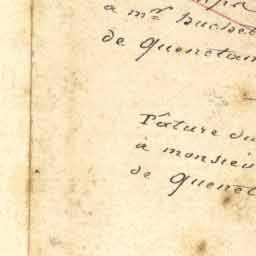 a mr
de Quenetan
Pâture du
à monsieu
de Quenet